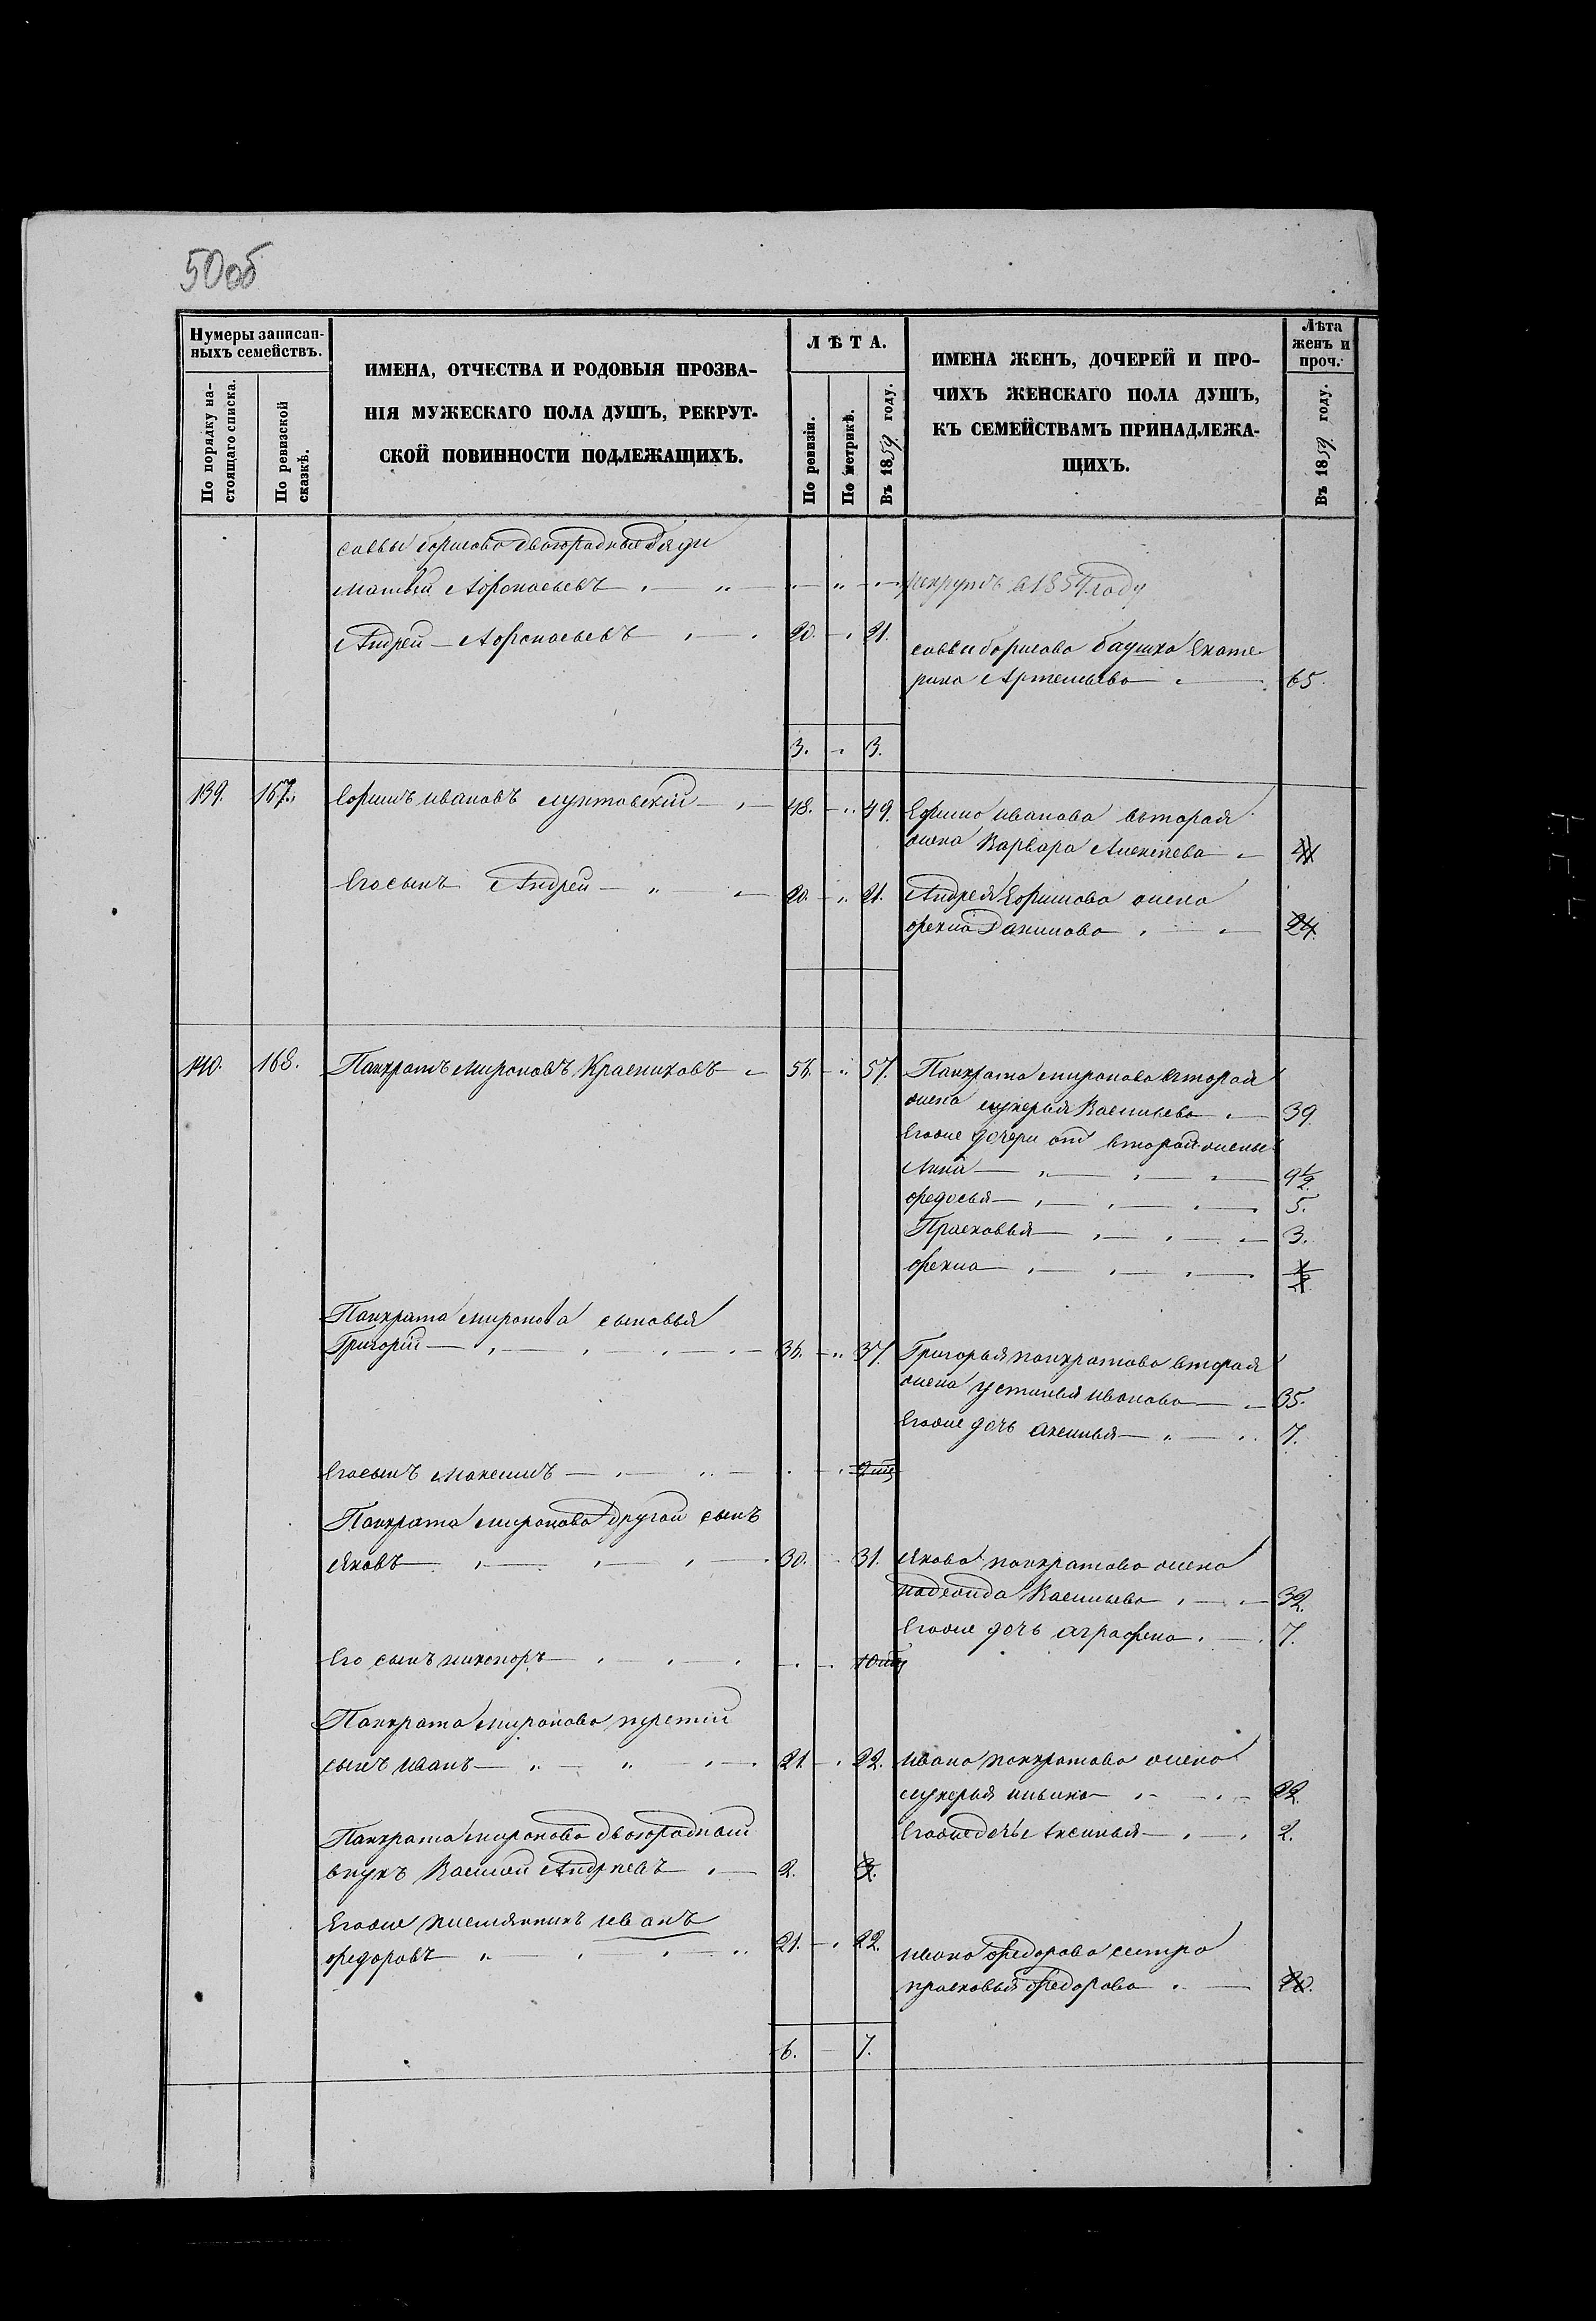 50об
Нумеры записан-
ныхъ семействъ.
По порядку на-
стоящаго списка.
По ревизской
сказкѣ.
ИМЕНА, ОТЧЕСТВА И РОДОВЫЯ ПРОЗВА-
НІЯ МУЖЕСКАГО ПОЛА ДУШЪ, РЕКРУТ-
СКОЙ ПОВИННОСТИ ПОДЛЕЖАЩИХЪ.
ЛѢТА.
По ревизіи.
По метрикѣ.
Въ 1859 году.
ИМЕНА ЖЕНЪ, ДОЧЕРЕЙ И ПРО-
ЧИХЪ ЖЕНСКАГО ПОЛА ДУШЪ,
КЪ СЕМЕЙСТВАМЪ ПРИНАДЛЕЖА-
ЩИХЪ.
Лѣта
женъ и
проч.
Въ 1859 году.
саввы борисова двоюродные дяди
матвей Афонасьевъ рекрутъ в 1859 году
Андрей Афонасьевъ 20. 21.
саввы борисова баушка Екате
рина Артемьева 65.
3. 3.
139. 167. Ефимъ ивановъ 48. 49. Ефима иванова вторая
жена Варвара Алексеева
Его сынъ Андрей 20. 21. Андрея Ефимова жена
фекла Данилова 24.
140. 168. Панкратъ мироновъ Красиковъ 56. 57. Панкрата миронова вторая
жена лукерья Васильева 39
Его же дочери от второй жены
Анна 9½.
федосья 5.
Прасковья 3.
фекла ½
Панкрата миронова сыновья
Григорій 36. 37. Григорья панкратова вторая
жена устинья иванова 35.
Его же дочь аксинья 7.
Его сынъ максимъ
Панкрата миронова другой сынъ
Яковъ 30. 31. Якова панкратова жена
надежда Васильева 32.
Его же дочь аграфена 7.
Его сынъ никоноръ
Панкрата миронова третій
сынъ иванъ 21. 22. ивана панкратова жена
лукерья ильина 22.
Его же дочь Аксинья 2.
Панкрата миронова двоюродный
внукъ Василей Андреевъ 2. 3.
Его же племянникъ иванъ
федоровъ 21. 22. ивана федорова сестра
прасковья федорова 20.
6. 7.